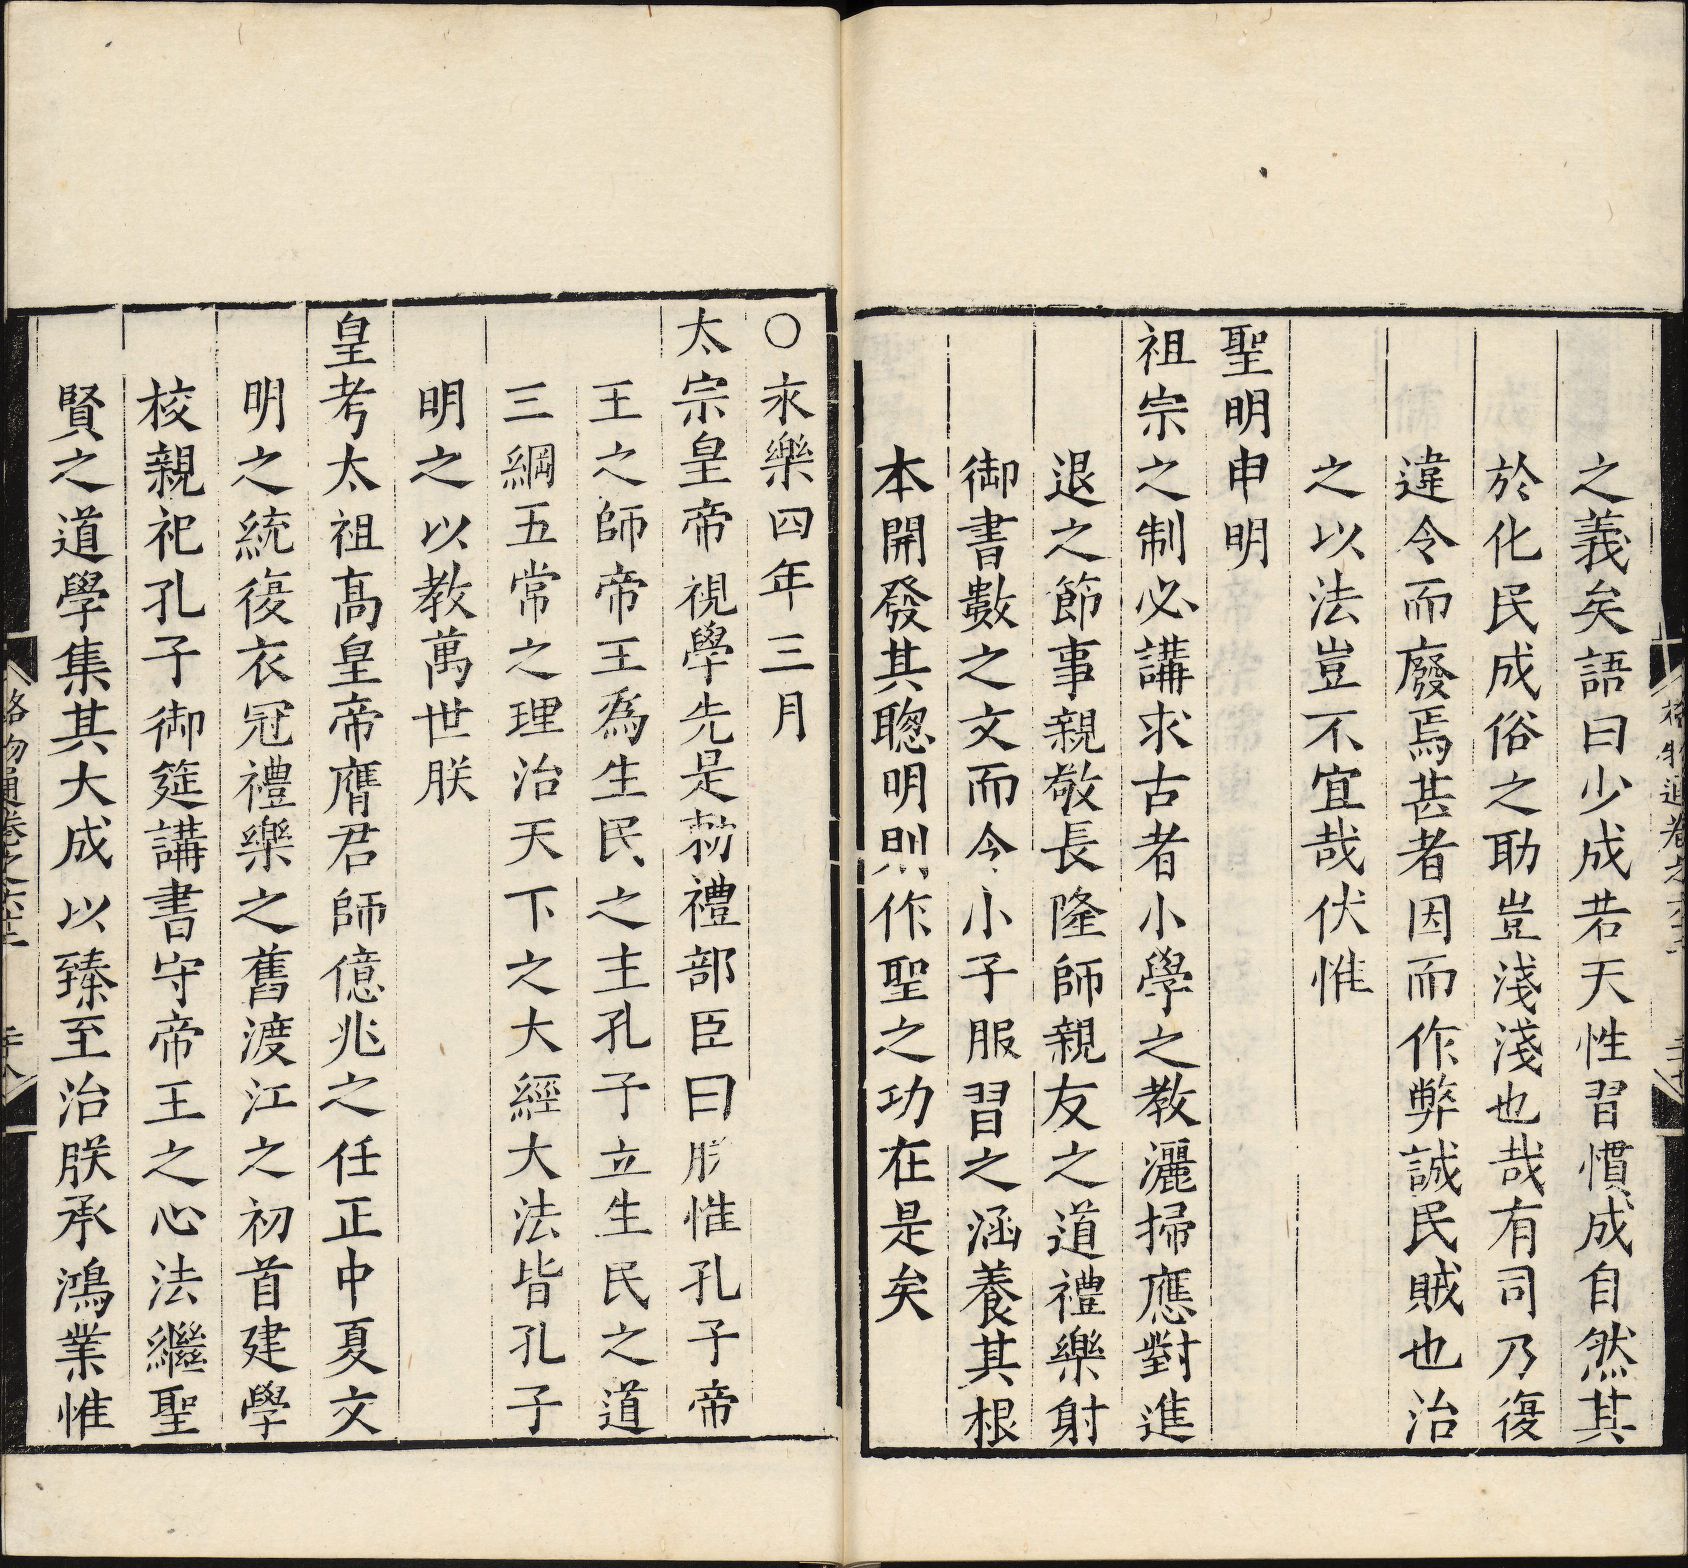 之義矣語曰少成若天性習慣成自然其
於化民成俗之助豈淺淺也哉有司乃復
違令而廢焉甚者因而作弊誠民賊也治
之以法豈不宜哉伏惟
聖明申明
祖宗之制必講求古者小學之教灑掃應對進
退之節事親敬長隆師親友之道禮樂射
御書數之文而令小子服習之涵養其根
本開發其聰明則作聖之功在是矣
○永樂四年三月
太宗皇帝視學先是勑禮部臣曰朕惟孔子帝
王之師帝王為生民之主孔子立生民之道
三綱五常之理治天下之大經大法皆孔子
明之以教萬世朕
皇考太祖高皇帝膺君師億兆之任正中夏文
明之統復衣冠禮樂之舊渡江之初首建學
校親祀孔子御筵講書守帝王之心法繼聖
賢之道學集其大成以臻至治朕承鴻業惟